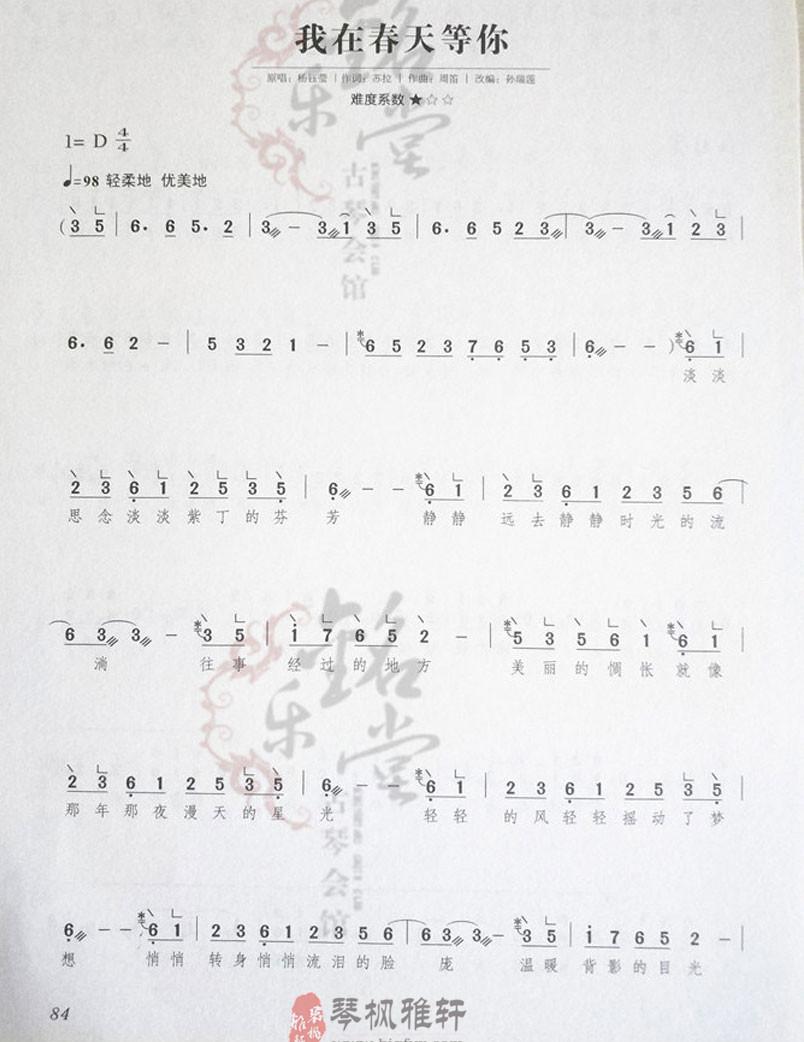 我在春天等你
原唱：杨钰莹 | 作词：苏拉 | 作曲：周笛 | 改编：孙瑞莲
难度系数 ★☆☆
1= D 4/4
♩=98 轻柔地 优美地
(3 5 | 6· 6 5· 2 | 3 – 3 1 3 5 | 6· 6 5 2 3 | 3 – 3 1 2 3 |
6· 6 2 – | 5 3 2 1 – | 6 5 2 3 7 6 5 3 | 6 – – ) 6 1 |
淡淡
2 3 6 1 2 5 3 5 | 6 – – 6 1 | 2 3 6 1 2 3 5 6 |
思念淡淡紫丁的芬芳 静静 远去静静时光的流
6 3 3 – 3 5 | i 7 6 5 2 – | 5 3 5 6 1 6 1 |
淌 往事 经过的地方 美丽的惆怅就像
2 3 6 1 2 5 3 5 | 6 – – 6 1 | 2 3 6 1 2 5 3 5 |
那年那夜漫天的星光 轻轻 的风轻轻摇动了梦
6 – – 6 1 | 2 3 6 1 2 3 5 6 | 6 3 3 – 3 5 | i 7 6 5 2 – |
想 悄悄 转身悄悄流泪的脸 庞 温暖 背影的目光
84
銘乐堂
古琴会馆
銘乐堂
古琴会馆
琴枫雅轩